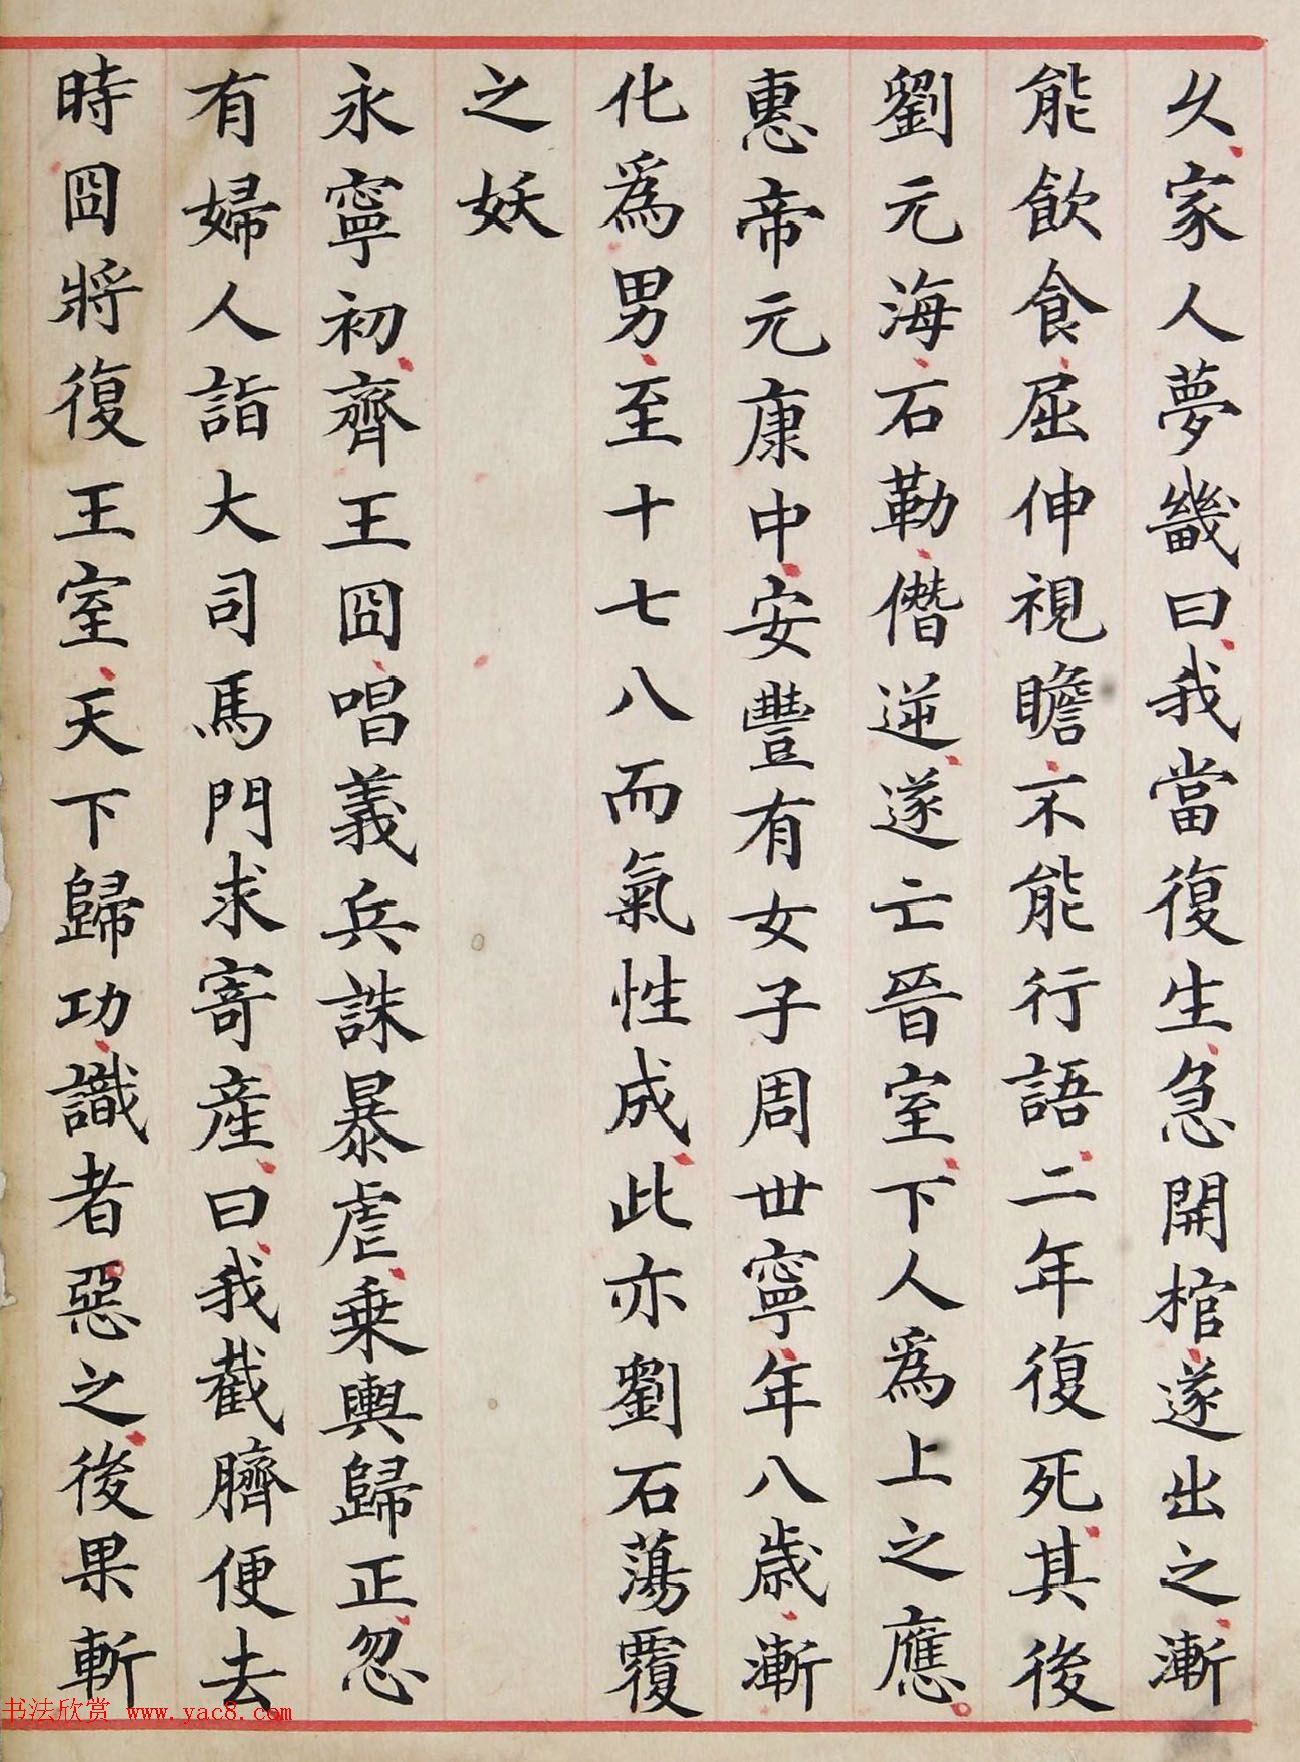 久家人夢畿曰我當復生急開棺遂出之漸
能飲食屈伸視瞻不能行語二年復死其後
劉元海石勒僭逆遂亡晉室下人爲上之應
惠帝元康中安豐有女子周世寧年八歲漸
化爲男至十七八而氣性成此亦劉石蕩覆
之妖
永寧初齊王冏唱義兵誅暴虐乗輿歸正忽
有婦人詣大司馬門求寄産曰我截臍便去
時冏將復王室天下歸功識者惡之後果斬
书法欣赏 www.yac8.com